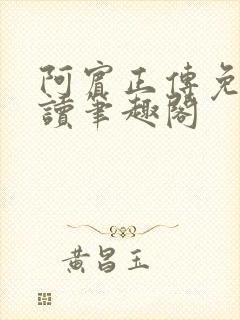 阿賓正傳免
讀筆趣閣
黃昌玉